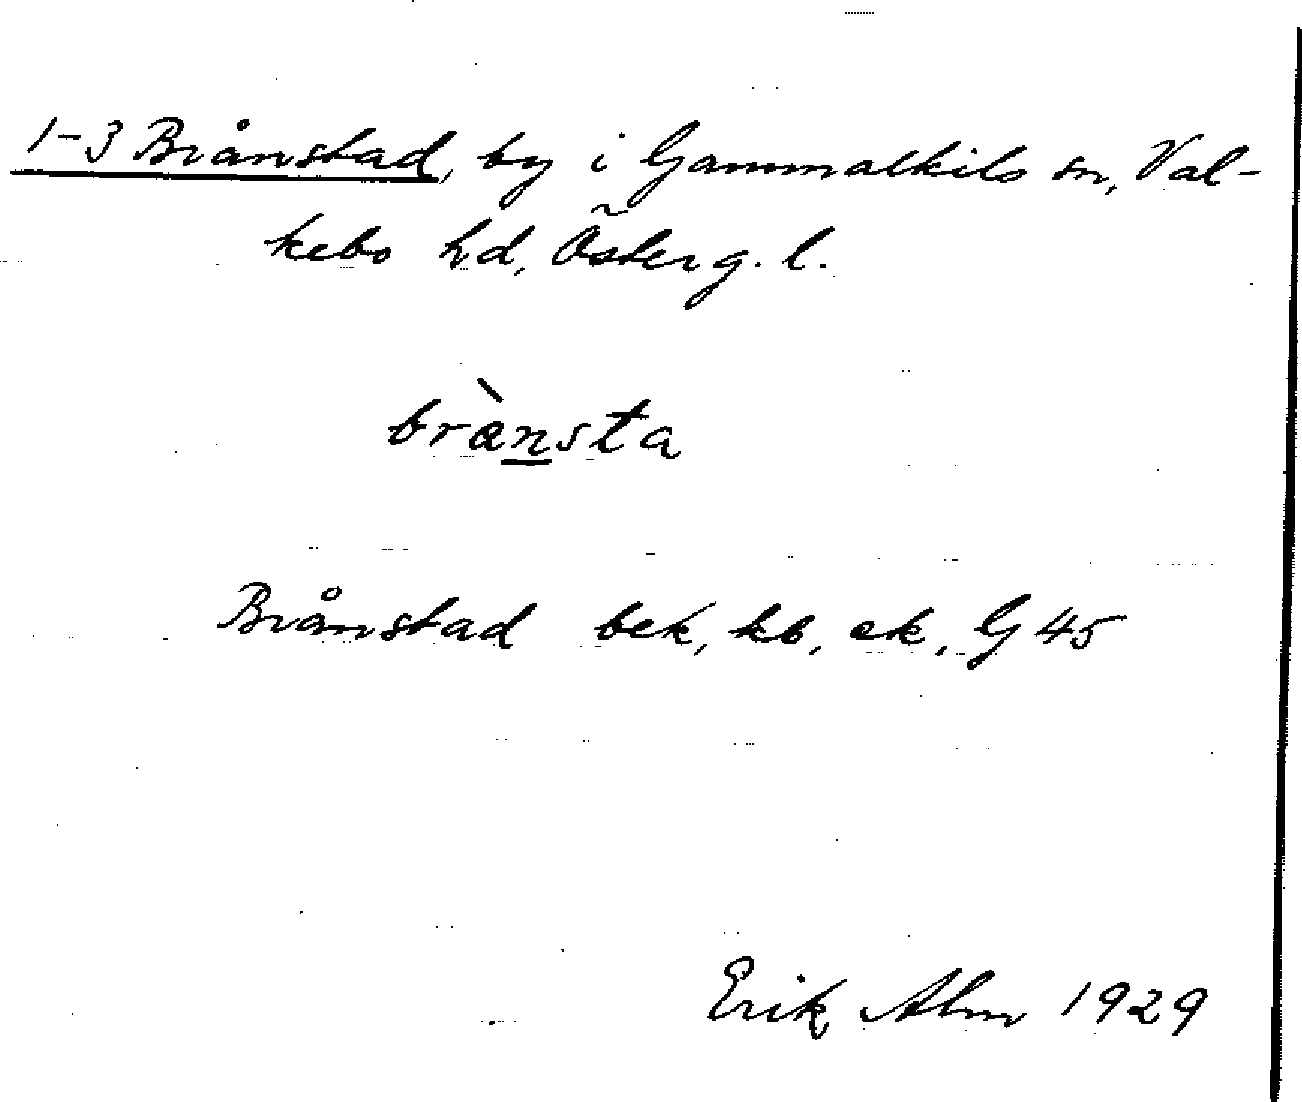 1-3 Brånstad, by i Gammalkils sn, Val-
kebo hd, Österg. l.
brænsta
Brånstad bek, kb, ek, G 45
Erik Alm 1929